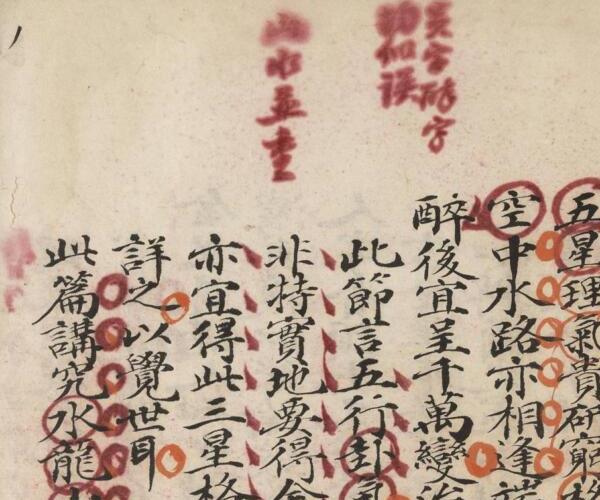 五星理氣貴研窮
空中水路亦相逢
醉後宜呈千萬變
此節言五行卦氣
非特實地要得合
亦宜得此三星格
詳之以覺世耳
此篇講究水龍
字醉字
似誤
山水並重